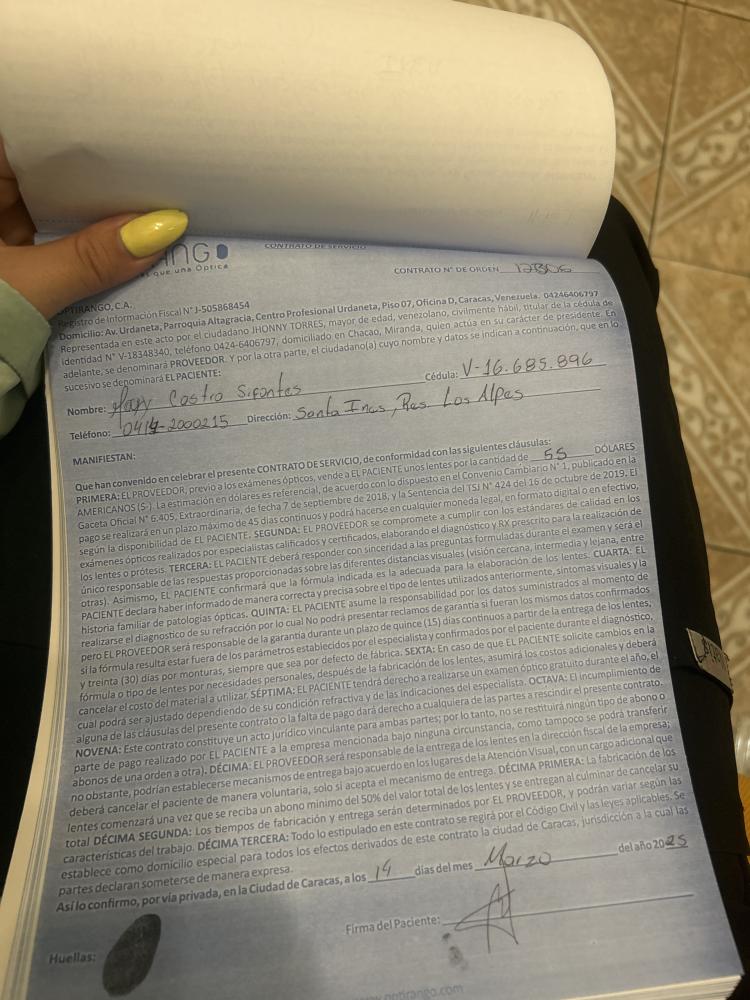 ANGO
que una Óptica
CONTRATO DE SERVICIO
CONTRATO N° DE ORDEN
OPTIRANGO, C.A.
Registro de Información Fiscal N° J-505868454
Domicilio: Av. Urdaneta, Parroquia Altagracia, Centro Profesional Urdaneta, Piso 07, Oficina D, Caracas, Venezuela. 04246406797
Representada en este acto por el ciudadano JHONNY TORRES, mayor de edad, venezolano, civilmente hábil, titular de la cédula de
Identidad N° V-18348340, teléfono 0424-6406797, domiciliado en Chacao, Miranda, quien actua en su carácter de presidente. En
adelante, se denominará PROVEEDOR. Y por la otra parte, el ciudadano(a) cuyo nombre y datos se indican a continuación, que en lo
sucesivo se denominará EL PACIENTE:
Nombre: Castro Sifontes Cédula: V-16.685.896
Teléfono: 0414-2000215 Dirección: Santa Ines, Res. Los Alpes
MANIFIESTAN:
Que han convenido en celebrar el presente CONTRATO DE SERVICIO, de conformidad con las siguientes cláusulas:
PRIMERA: EL PROVEEDOR, previo a los exámenes ópticos, vende a EL PACIENTE unos lentes por la cantidad de 55 DÓLARES
AMERICANOS ($-). La estimación en dólares es referencial, de acuerdo con lo dispuesto en el Convenio Cambiario N° 1, publicado en la
Gaceta Oficial N° 6.405, Extraordinaria, de fecha 7 de septiembre de 2018, y la Sentencia del TSJ N° 424 del 16 de octubre de 2019. El
pago se realizará en un plazo máximo de 45 días continuos y podrá hacerse en cualquier moneda legal, en formato digital o en efectivo,
según la disponibilidad de EL PACIENTE. SEGUNDA: EL PROVEEDOR se compromete a cumplir con los estándares de calidad en los
exámenes ópticos realizados por especialistas calificados y certificados, elaborando el diagnóstico y RX prescrito para la realización de
los lentes o prótesis. TERCERA: EL PACIENTE deberá responder con sinceridad a las preguntas formuladas durante el examen y será el
único responsable de las respuestas proporcionadas sobre las diferentes distancias visuales (visión cercana, intermedia y lejana, entre
otras). Asimismo, EL PACIENTE confirmará que la fórmula indicada es la adecuada para la elaboración de los lentes. CUARTA: EL
PACIENTE declara haber informado de manera correcta y precisa sobre el tipo de lentes utilizados anteriormente, síntomas visuales y la
historia familiar de patologías ópticas. QUINTA: EL PACIENTE asume la responsabilidad por los datos suministrados al momento de
realizarse el diagnostico de su refracción por lo cual No podrá presentar reclamos de garantía si fueran los mismos datos confirmados
pero EL PROVEEDOR será responsable de la garantía durante un plazo de quince (15) días continuos a partir de la entrega de los lentes,
si la fórmula resulta estar fuera de los parámetros establecidos por el especialista y confirmados por el paciente durante el diagnóstico,
y treinta (30) días por monturas, siempre que sea por defecto de fábrica. SEXTA: En caso de que EL PACIENTE solicite cambios en la
fórmula o tipo de lentes por necesidades personales, después de la fabricación de los lentes, asumirá los costos adicionales y deberá
cancelar el costo del material a utilizar. SÉPTIMA: EL PACIENTE tendrá derecho a realizarse un examen óptico gratuito durante el año, el
cual podrá ser ajustado dependiendo de su condición refractiva y de las indicaciones del especialista. OCTAVA: El incumplimiento de
alguna de las cláusulas del presente contrato o la falta de pago dará derecho a cualquiera de las partes a rescindir el presente contrato.
NOVENA: Este contrato constituye un acto jurídico vinculante para ambas partes; por lo tanto, no se restituirá ningún tipo de abono o
parte de pago realizado por EL PACIENTE a la empresa mencionada bajo ninguna circunstancia, como tampoco se podrá transferir
abonos de una orden a otra). DÉCIMA: EL PROVEEDOR será responsable de la entrega de los lentes en la dirección fiscal de la empresa;
no obstante, podrían establecerse mecanismos de entrega bajo acuerdo en los lugares de la Atención Visual, con un cargo adicional que
deberá cancelar el paciente de manera voluntaria, solo si acepta el mecanismo de entrega. DÉCIMA PRIMERA: La fabricación de los
lentes comenzará una vez que se reciba un abono mínimo del 50% del valor total de los lentes y se entregan al culminar de cancelar su
total DÉCIMA SEGUNDA: Los tiempos de fabricación y entrega serán determinados por EL PROVEEDOR, y podrán variar según las
características del trabajo. DÉCIMA TERCERA: Todo lo estipulado en este contrato se regirá por el Código Civil y las leyes aplicables. Se
establece como domicilio especial para todos los efectos derivados de este contrato la ciudad de Caracas, jurisdicción a la cual las
partes declaran someterse de manera expresa.
Así lo confirmo, por vía privada, en la Ciudad de Caracas, a los 14 días del mes Marzo del año 2025
Firma del Paciente:
Huellas:
www.optirango.com